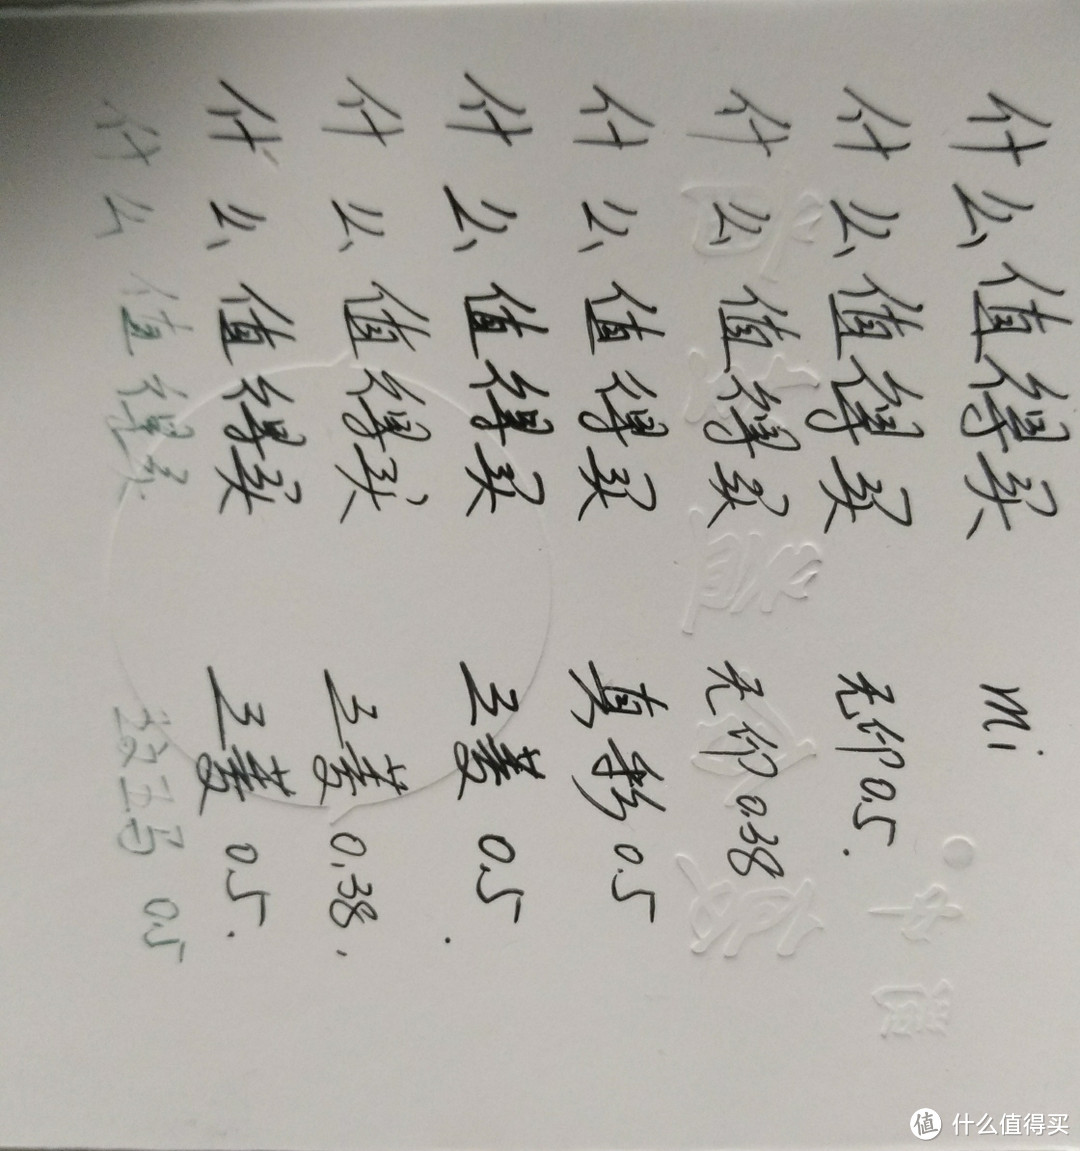 什么值得买 mi
什么值得买 无印0.5.
什么值得买 无印0.38
什么值得买 真彩0.5
什么值得买 三菱 0.5.
什么值得买 三菱 0.38.
什么值得买 三菱 0.5.
什么值得买 斑马 0.5
值 什么值得买